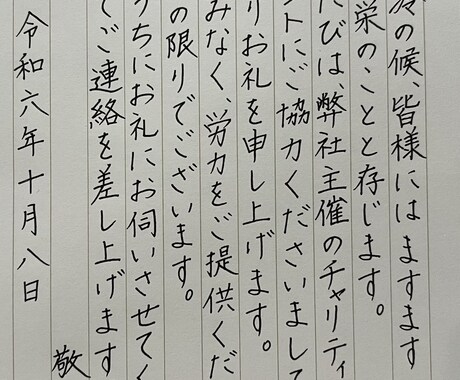 冷の候、皆様にはますます
栄のことと存じます。
たびは、弊社主催のチャリティ
トにご協力くださいまして
りお礼を申し上げます。
みなく、労力をご提供くだ
の限りでございます。
うちにお礼にお伺いさせてく
てご連絡を差し上げます
敬
令和六年十月八日